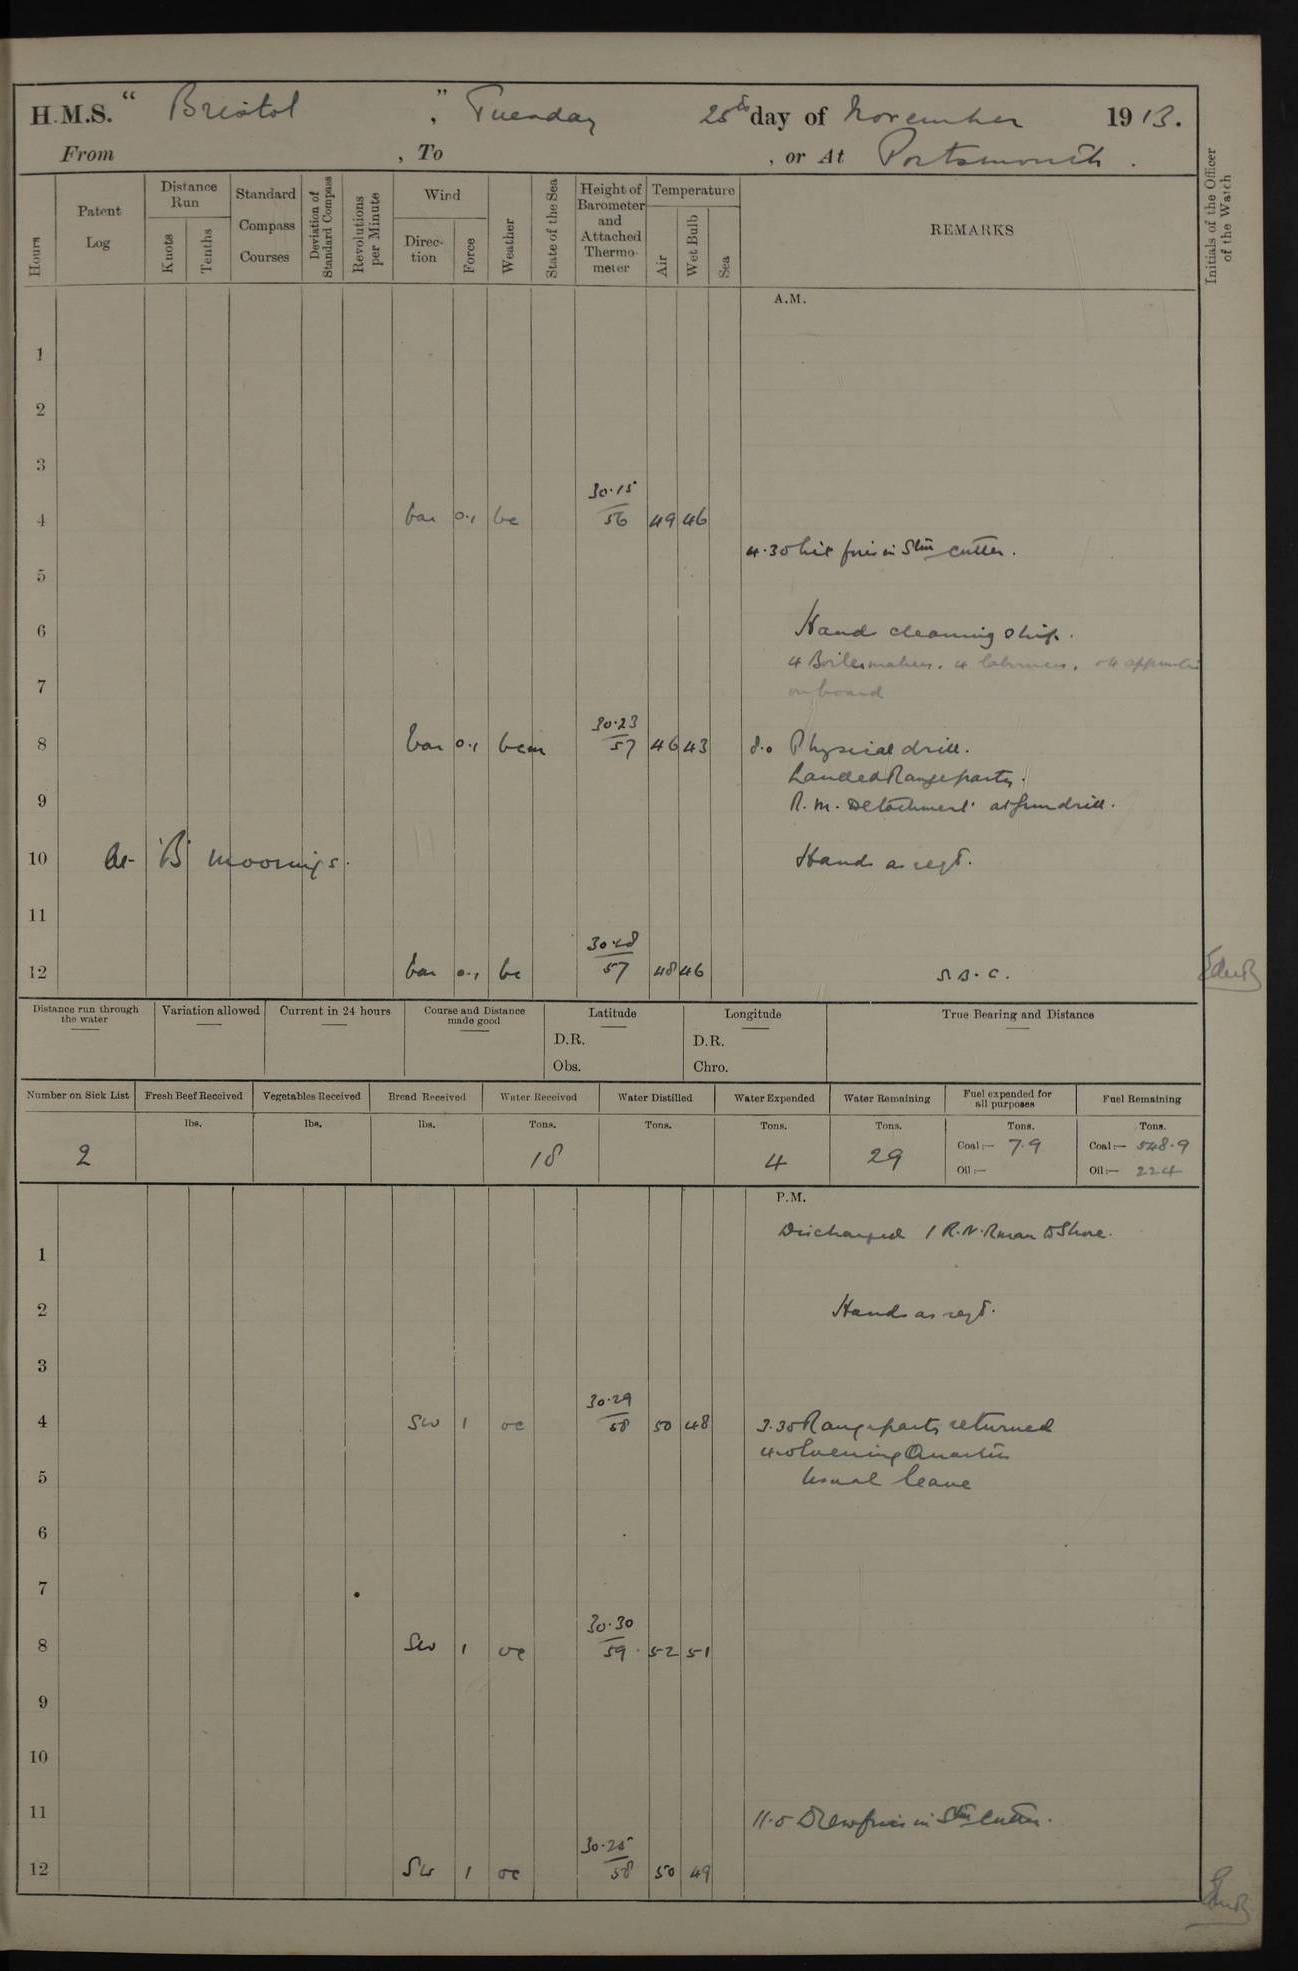 H.M.S. "Bristol", Tuesday 25th day of November 1913.
From , To , or At Portsmouth.
Hours
Patent Log
Distance Run
Knots
Tenths
Standard Compass Courses
Deviation of Standard Compass
Revolutions per Minute
Wind
Direction
Force
Weather
State of the Sea
Height of Barometer and Attached Thermometer
Temperature
Air
Wet Bulb
Sea
REMARKS
Initials of the Officer of the Watch
A.M.
1
2
3
4 var 0.1 bc 30.15 56 49 46
4.30 Lit fires in Stm cutter.
5
6 Hands cleaning ship.
4 Boilermakers, 4 labourers,
7 on board
8 var 0.1 bcm 30.23 57 46 43 8.0 Physical drill.
Landed Range party.
9 R.M. Detachment at gun drill.
10 At 'B' moorings. Hands as reqd.
11
12 var 0.1 bc 30.28 57 48 46 S.B.C.
Distance run through the water
Variation allowed
Current in 24 hours
Course and Distance made good
Latitude
D.R.
Obs.
Longitude
D.R.
Chro.
True Bearing and Distance
Number on Sick List
Fresh Beef Received
Vegetables Received
Bread Received
Water Received
Water Distilled
Water Expended
Water Remaining
Fuel expended for all purposes
Fuel Remaining
lbs. lbs. lbs. Tons. Tons. Tons. Tons. Tons. Tons.
2 18 4 29 Coal:— 7.9 Coal:— 548.9
Oil:— Oil:— 224
P.M.
Discharged 1 R.N.Rman to Shore.
1
2 Hands as reqd.
3
4 SW 1 oc 30.29 58 50 48 3.30 Range party returned
4.0 Evening Quarters
5 Usual leave
6
7
8 SW 1 oc 30.30 59 52 51
9
10
11 11.0 Drew fires in Stm cutter.
12 SW 1 oc 30.25 58 50 49